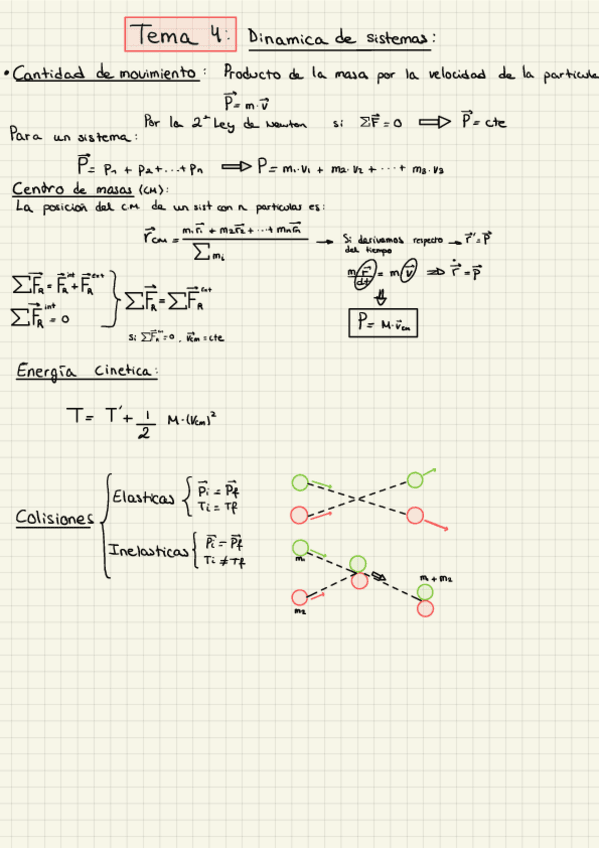 Tema 4: Dinamica de sistemas:
• Cantidad de movimiento: Producto de la masa por la velocidad de la particula
P⃗ = m·v⃗
Por la 2ª Ley de Newton si ΣF⃗ = 0 ⇒ P⃗ = cte
Para un sistema:
P⃗ = p₁ + p₂ + ... + pₙ ⇒ P = m₁·v₁ + m₂·v₂ + ... + m₃·v₃
Centro de masas (CM):
La posicion del C.M de un sist con n particulas es:
r⃗cm = m₁r⃗₁ + m₂r⃗₂ + ... + mₙr⃗ₙ / Σmᵢ → Si derivamos respecto del tiempo → r⃗' = P⃗
ΣF⃗R = F⃗R^int + F⃗R^ext
ΣF⃗R^int = 0
ΣF⃗R = ΣF⃗R^ext
si ΣF⃗R^ext = 0 . v⃗cm = cte
m dr⃗/dt = m v⃗ ⇒ ṙ⃗ = P⃗
⇓
P = M·v⃗cm
Energía Cinetica:
T = T' + 1/2 M·(Vcm)²
Colisiones
Elasticas
P⃗i = P⃗f
Ti = Tf
Inelasticas
P⃗i = P⃗f
Ti ≠ Tf
m₁
m₂
m₁ + m₂